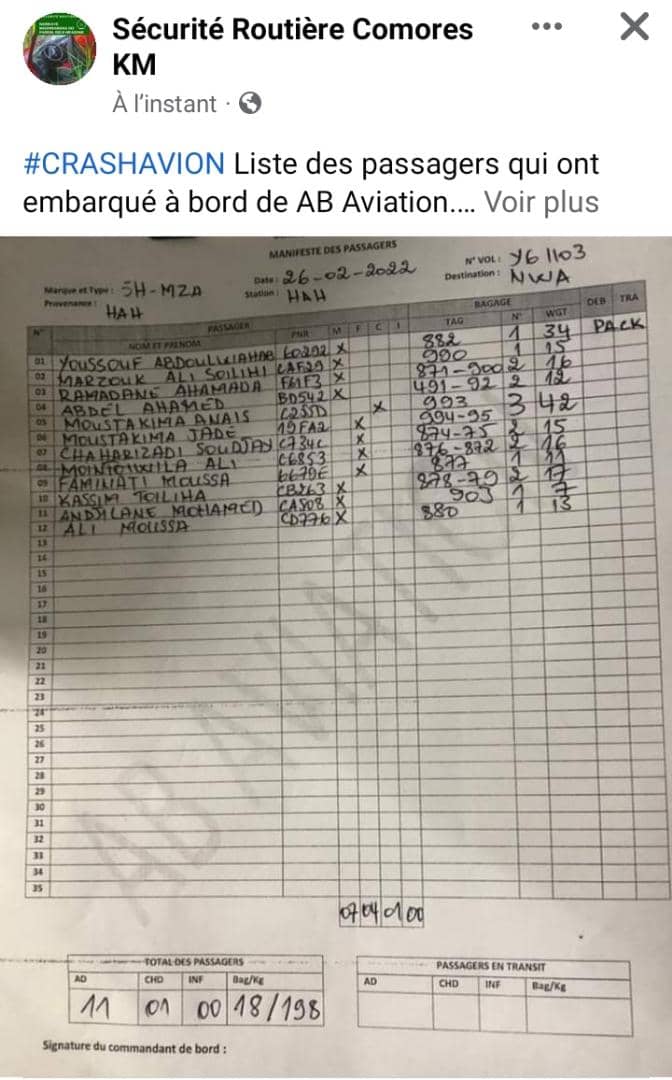 Sécurité Routière Comores
KM
À l'instant ·
#CRASHAVION Liste des passagers qui ont
embarqué à bord de AB Aviation.... Voir plus
MANIFESTE DES PASSAGERS
Marque et Type : 5H-MZA Date : 26-02-2022 N° VOL : Y61103
Provenance : HAH Station : HAH Destination : NWA
PASSAGER BAGAGE
N° NOM ET PRENOM PNR M F C I TAG N° WGT DEB TRA
01 YOUSSOUF ABDOULWAHAB X 882 1 34 PACK
02 MARZOUK ALI SOILIHI CAF29 X 990 1 15
03 RAMADANE AHAMADA F61F3 X 871-900 2 16
04 ABDEL AHAMED BD542 X 491-92 2 12
05 MOUSTAKIMA ANAIS C255D X 993 3 42
06 MOUSTAKIMA JADE 19FA2 X 994-95
07 CHAHARIZADI SOUDJAY C734C X 874-75 2 15
08 ALI C6853 X 876-872 2 16
09 FAMINATI MOUSSA 6679E X 877 1 11
10 KASSIM TOILIHA X 878-79 2 17
11 ANDHLANE MOHAMED CA508 X 903 1 7
12 ALI MOUSSA CD776 X 880 1 13
13
14
15
16
17
18
19
20
21
22
23
24
25
26
27
28
29
30
31
32
33
34
35
07 04 01 00
AB AVIATION
TOTAL DES PASSAGERS PASSAGERS EN TRANSIT
AD CHD INF Bag/Kg AD CHD INF Bag/Kg
11 01 00 18/198
Signature du commandant de bord :